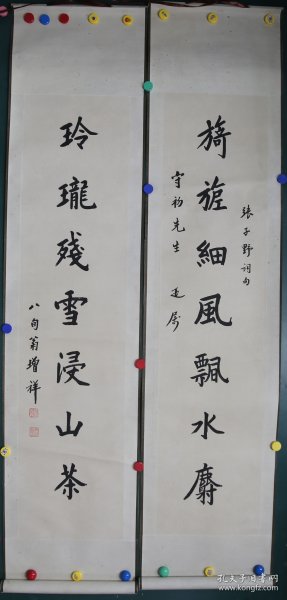 旖旎細風飄水麝
張子野詞句
守初先生 正屬
玲瓏殘雪浸山茶
八旬翁增祥
孔夫子旧书网
www.kongfz.com